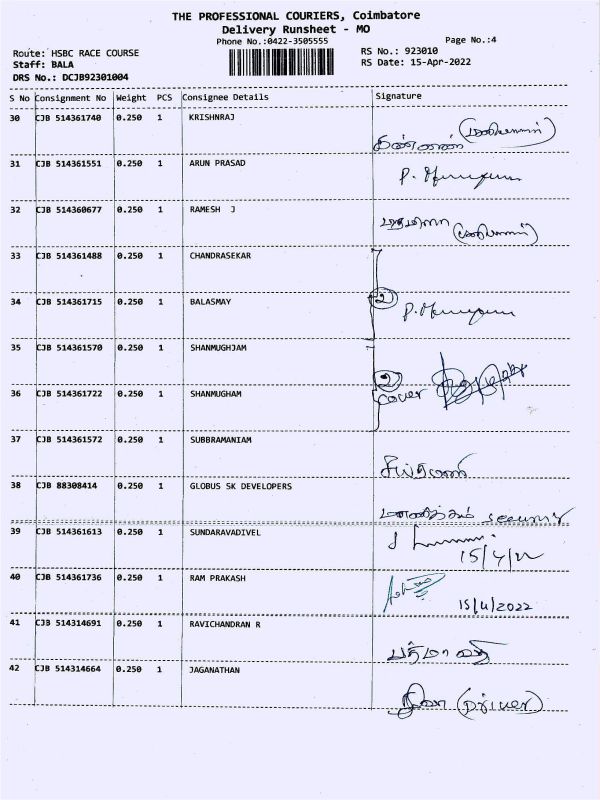 THE PROFESSIONAL COURIERS, Coimbatore
Delivery Runsheet - MO
Phone No.:0422-3505555
Page No.:4
Route: HSBC RACE COURSE
RS No.: 923010
Staff: BALA
RS Date: 15-Apr-2022
DRS No.: DCJB92301004
S No Consignment No Weight PCS Consignee Details Signature
30 CJB 514361740 0.250 1 KRISHNRAJ
31 CJB 514361551 0.250 1 ARUN PRASAD
32 CJB 514360677 0.250 1 RAMESH J
33 CJB 514361488 0.250 1 CHANDRASEKAR
34 CJB 514361715 0.250 1 BALASMAY
35 CJB 514361570 0.250 1 SHANMUGHJAM
36 CJB 514361722 0.250 1 SHANMUGHAM
cover
37 CJB 514361572 0.250 1 SUBBRAMANIAM
38 CJB 88308414 0.250 1 GLOBUS SK DEVELOPERS
security
39 CJB 514361613 0.250 1 SUNDARAVADIVEL
15/4/22
40 CJB 514361736 0.250 1 RAM PRAKASH
15/4/2022
41 CJB 514314691 0.250 1 RAVICHANDRAN R
42 CJB 514314664 0.250 1 JAGANATHAN
(Driver)